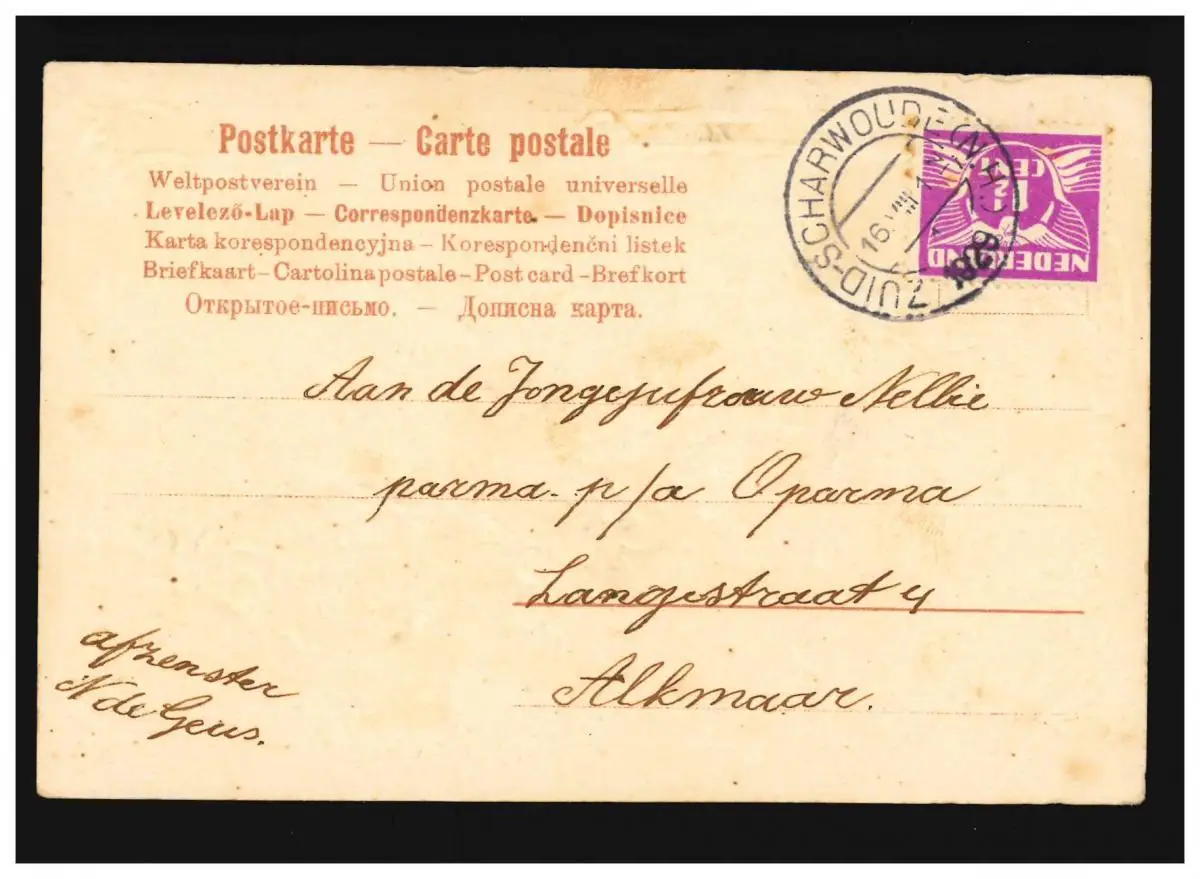 Postkarte — Carte postale
Weltpostverein — Union postale universelle
Levelező-Lap — Correspondenzkarte. — Dopisnice
Karta korespondencyjna - Korespondenčni listek
Briefkaart - Cartolina postale - Post card - Brefkort
Открытое-письмо. — Дописна карта.
ZUID-SCHARWOUDE (N.H.)
16. VIII 1
1929
1½ CENT
NEDERLAND
Aan de Jongejufrouw Nellie
parma. p/a Oparma
Langestraat 4
Alkmaar.
afzenster
N de Geus.